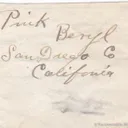 Pink
Beryl
San Daego Co
Califonia